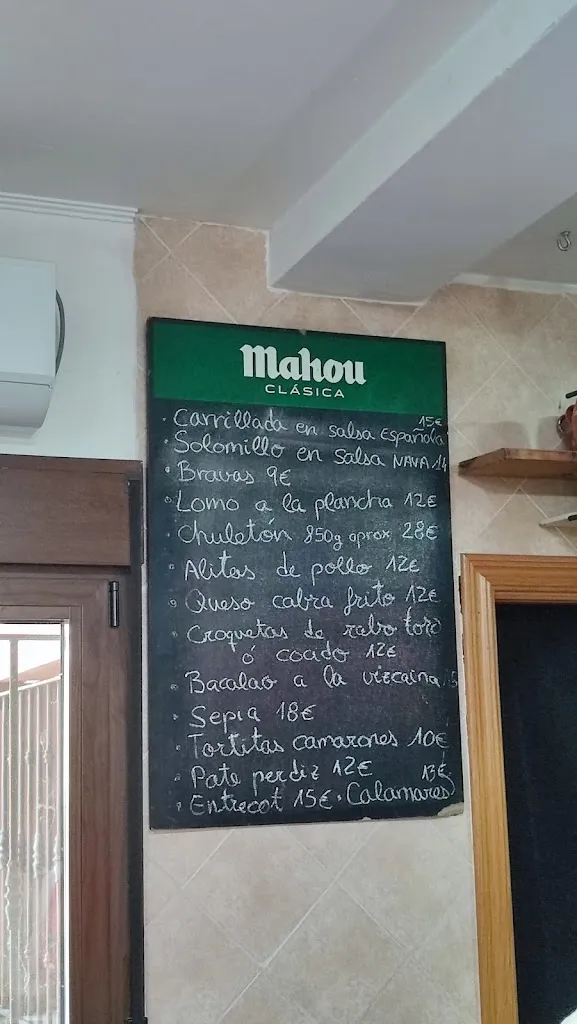 Mahou
CLÁSICA
• Carrillada en salsa Española 15€
• Solomillo en salsa NAVA 14
• Bravas 9€
• Lomo a la plancha 12€
• Chuletón 850g aprox 28€
• Alitas de pollo 12€
• Queso cabra frito 12€
• Croquetas de rabo toro
ó cocido 12€
• Bacalao a la vizcaina 15
• Sepia 18€
• Tortitas camarones 10€
• Pate perdiz 12€
• Entrecot 15€ • Calamares 13€